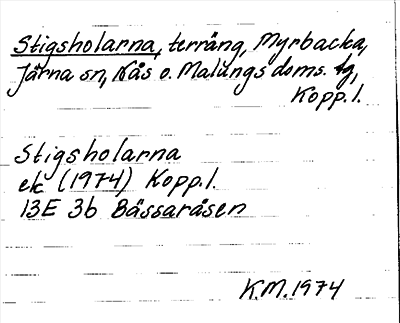 Stigsholarna, terräng, Myrbacka,
Järna sn, Nås o. Malungs doms. tg,
Kopp. l.
Stigsholarna
ek (1974) Kopp. l.
13E 3b Bässaråsen
K.M. 1974